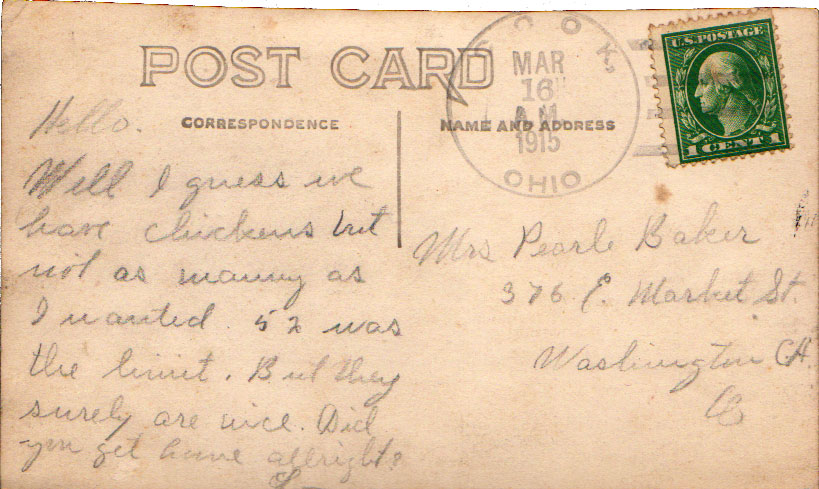 POST CARD
CORRESPONDENCE
NAME AND ADDRESS
COOK,
MAR
16
A.M.
1915
OHIO
U.S. POSTAGE
1 CENT 1
Hello.
Well I guess we
have chickens but
not as manny as
I wanted. 52 was
the limit. But they
surely are nice. Did
you get home allright?
Mrs Pearle Baker
376 E. Market St.
Washington C.H.